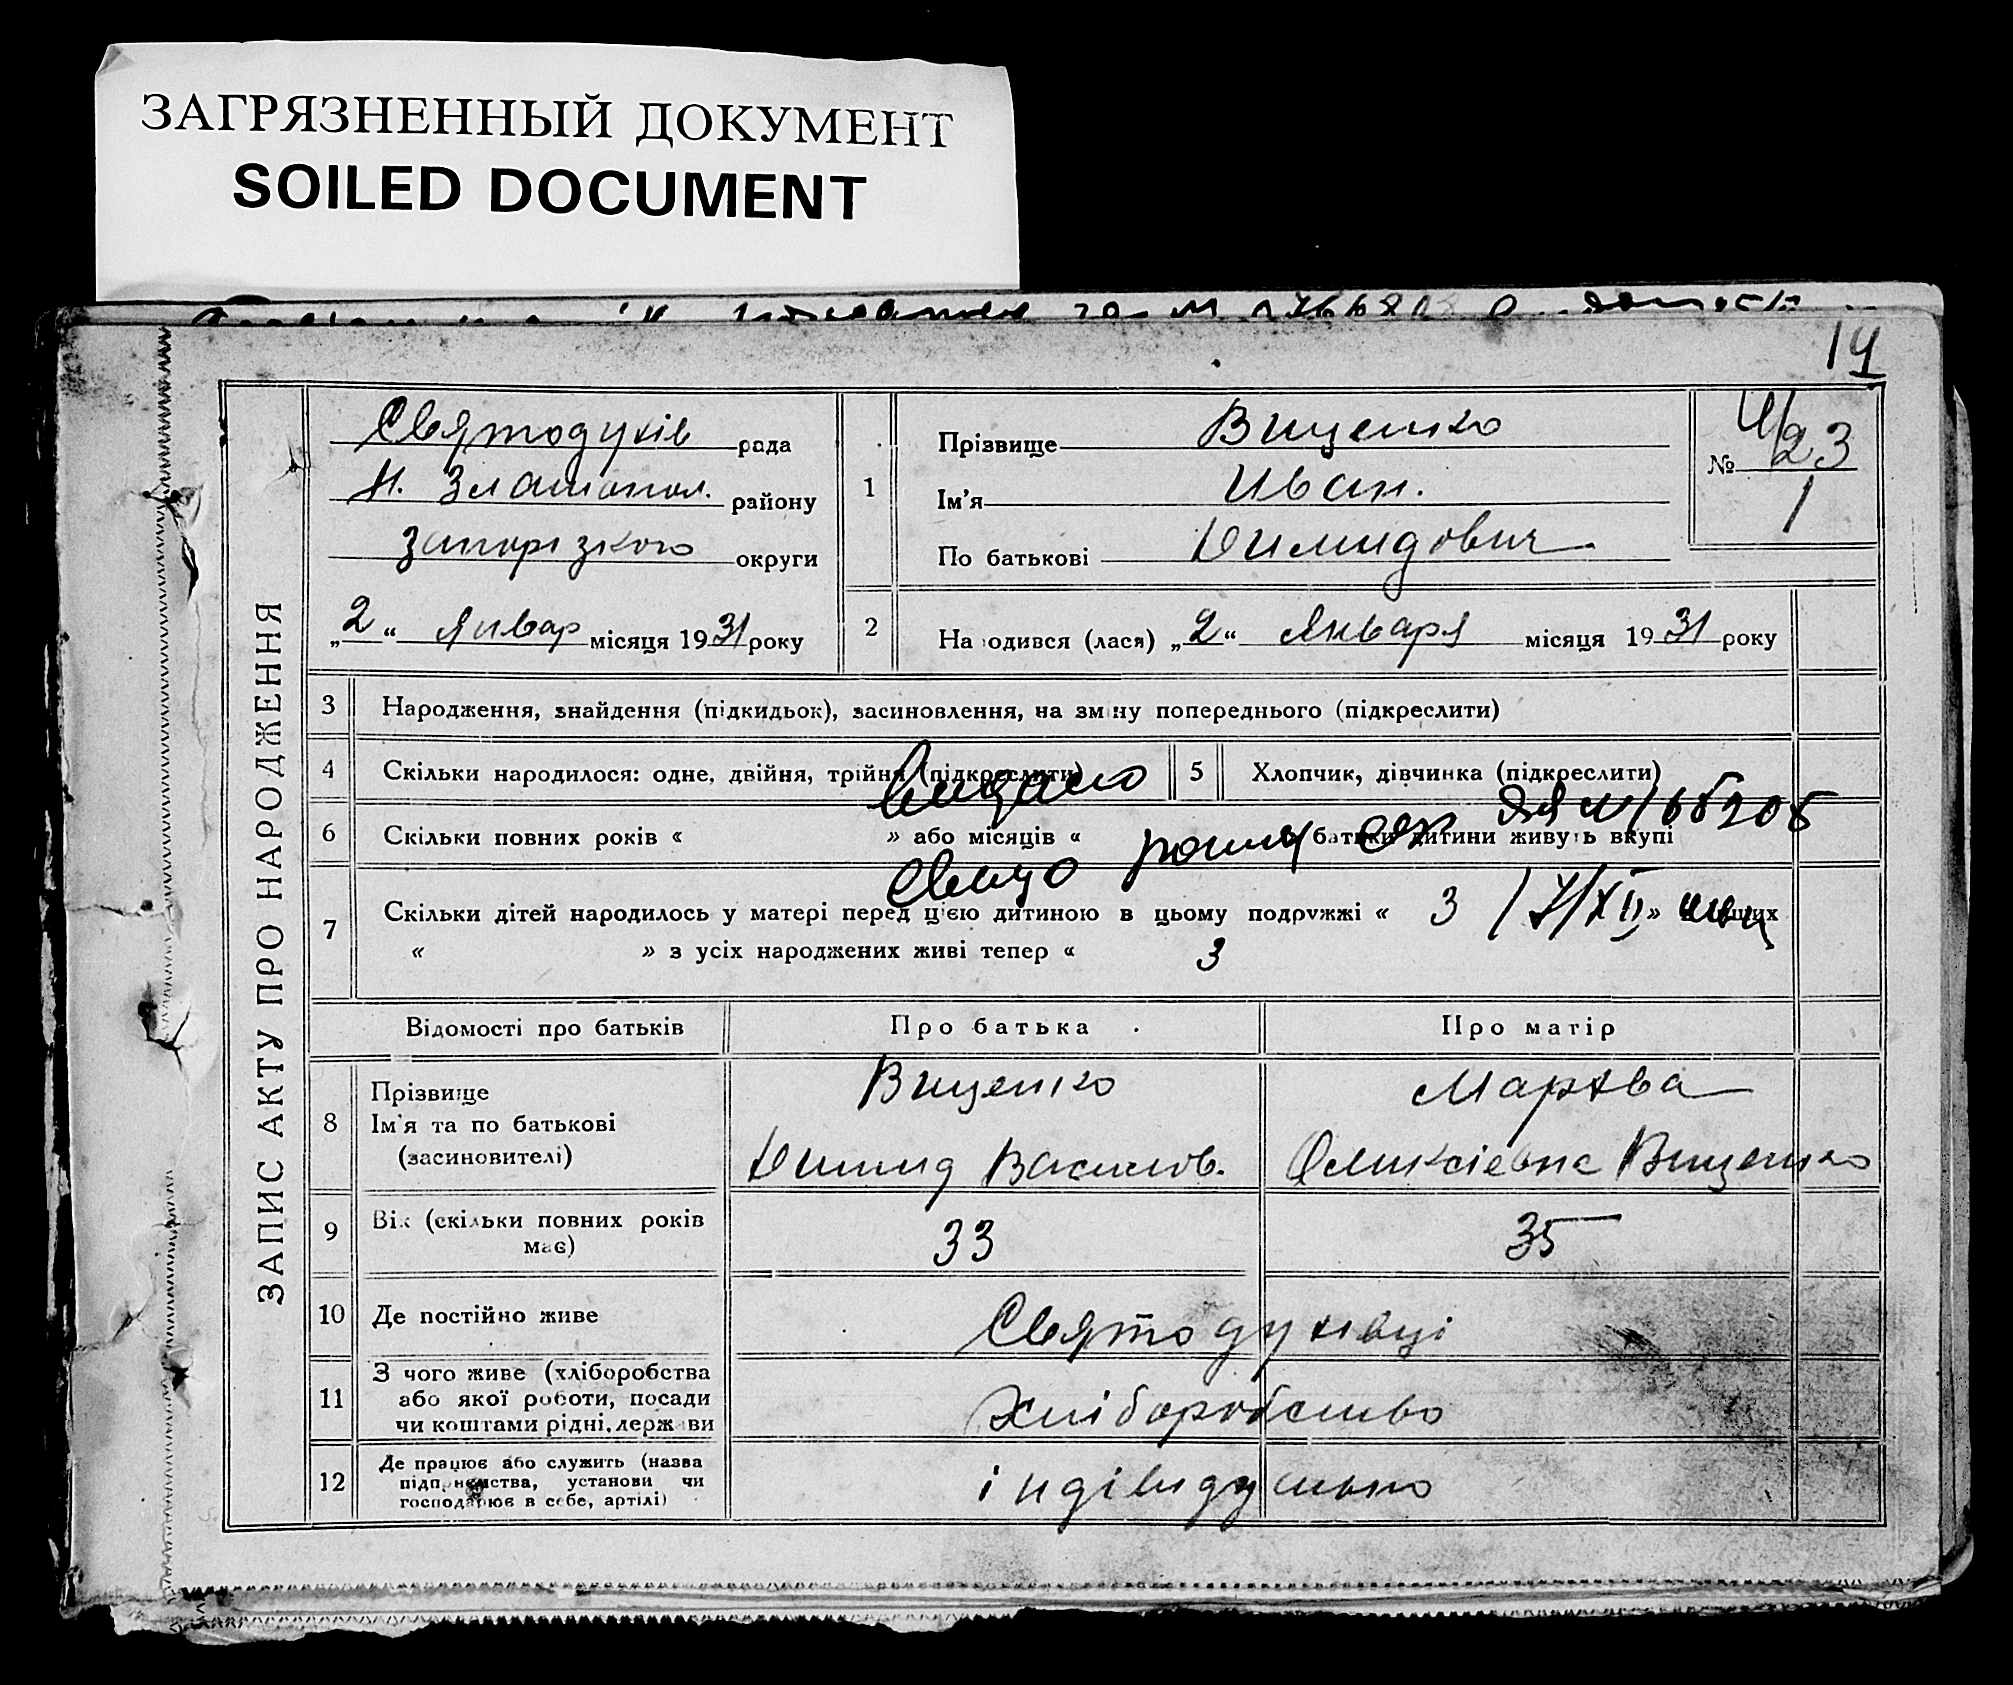 ЗАГРЯЗНЕННЫЙ ДОКУМЕНТ
SOILED DOCUMENT
14
ЗАПИС АКТУ ПРО НАРОДЖЕННЯ
Святодухів рада
Н. Златопол. району
Запорізкого округи
„2“ Январ місяця 1931 року
1
Прізвище Вищенко
Ім'я Иван.
По батькові Димидович
№ 23
1
2
На одився (лася) „2“ Января місяця 1931 року
3 Народження, знайдення (підкидьок), засиновлення, на зміну попереднього (підкреслити)
4 Скільки народилося: одне, двійня, трійня (підкреслити)
5 Хлопчик, дівчинка (підкреслити)
Видано
6 Скільки повних років « » або місяців « батьки дитини живуть вкупі
7 Скільки дітей народилось у матері перед цією дитиною в цьому подружжі « 3 »
« » з усіх народжених живі тепер « 3
Відомості про батьків Про батька Про матір
8 Прізвище
Ім'я та по батькові
(засиновителі)
Вищенко
Димид Василов.
Мархва
Оликсіевна Вищенко
9 Вік (скільки повних років має)
33 35
10 Де постійно живе
Святодухівці
11 З чого живе (хліборобства
або якої роботи, посади
чи коштами рідні, держави
Хліборобство
12 Де працює або служить (назва
підприємства, установи чи
господарює в себе, артілі)
індівидуально